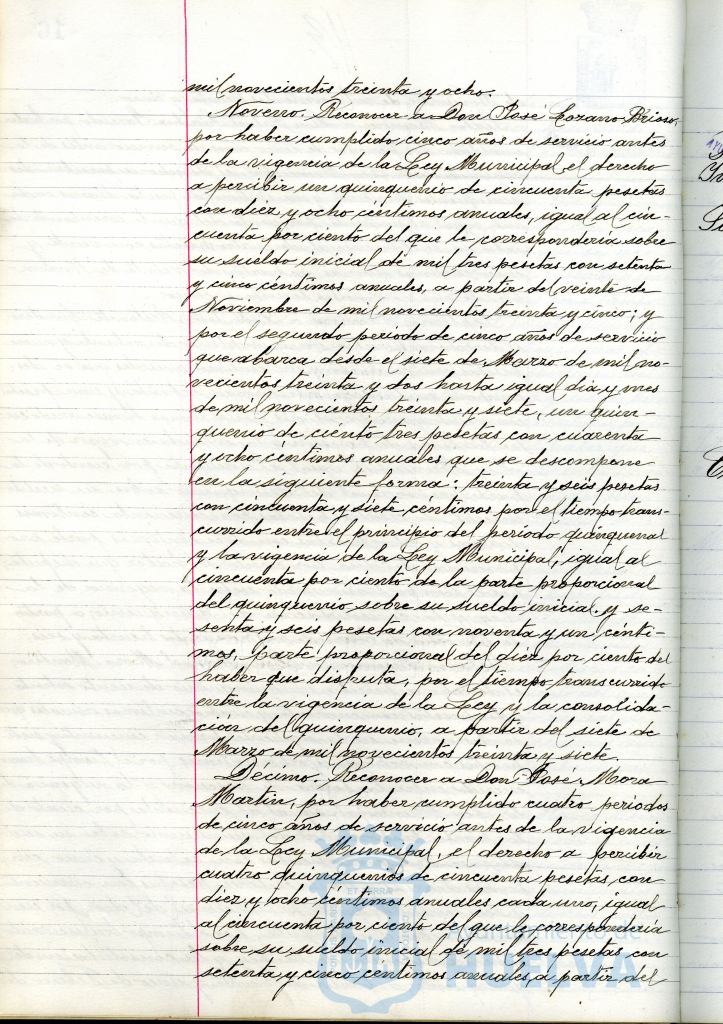 mil novecientos treinta y ocho.
Noveno. Reconocer a Don José Lozano Brioso,
por haber cumplido cinco años de servicio antes
de la vigencia de la Ley Municipal el derecho
a percibir un quinquenio de cincuenta pesetas
con diez y ocho céntimos anuales, igual al cin-
cuenta por ciento del que le correspondería sobre
su sueldo inicial de mil tres pesetas con setenta
y cinco céntimos anuales, a partir del veinte de
Noviembre de mil novecientos treinta y cinco; y
por el segundo período de cinco años de servicio
que abarca desde el siete de Marzo de mil no-
vecientos treinta y dos hasta igual día y mes
de mil novecientos treinta y siete, un quin-
quenio de ciento tres pesetas con cuarenta
y ocho céntimos anuales que se descompone
en la siguiente forma: treinta y seis pesetas
con cincuenta y siete céntimos por el tiempo trans-
currido entre el principio del período quinquenal
y la vigencia de la Ley Municipal, igual al
cincuenta por ciento de la parte proporcional
del quinquenio sobre su sueldo inicial. y se-
senta y seis pesetas con noventa y un cénti-
mos, parte proporcional del diez por ciento del
haber que disfruta, por el tiempo transcurrido
entre la vigencia de la Ley y la consolida-
ción del quinquenio, a partir del siete de
Marzo de mil novecientos treinta y siete.
Décimo. Reconocer a Don José Mora
Martin, por haber cumplido cuatro períodos
de cinco años de servicio antes de la vigencia
de la Ley Municipal, el derecho a percibir
cuatro quinquenios de cincuenta pesetas con
diez y ocho céntimos anuales cada uno, igual
al cincuenta por ciento del que le correspondería
sobre su sueldo inicial de mil tres pesetas con
setenta y cinco céntimos anuales, a partir del
HUELVA